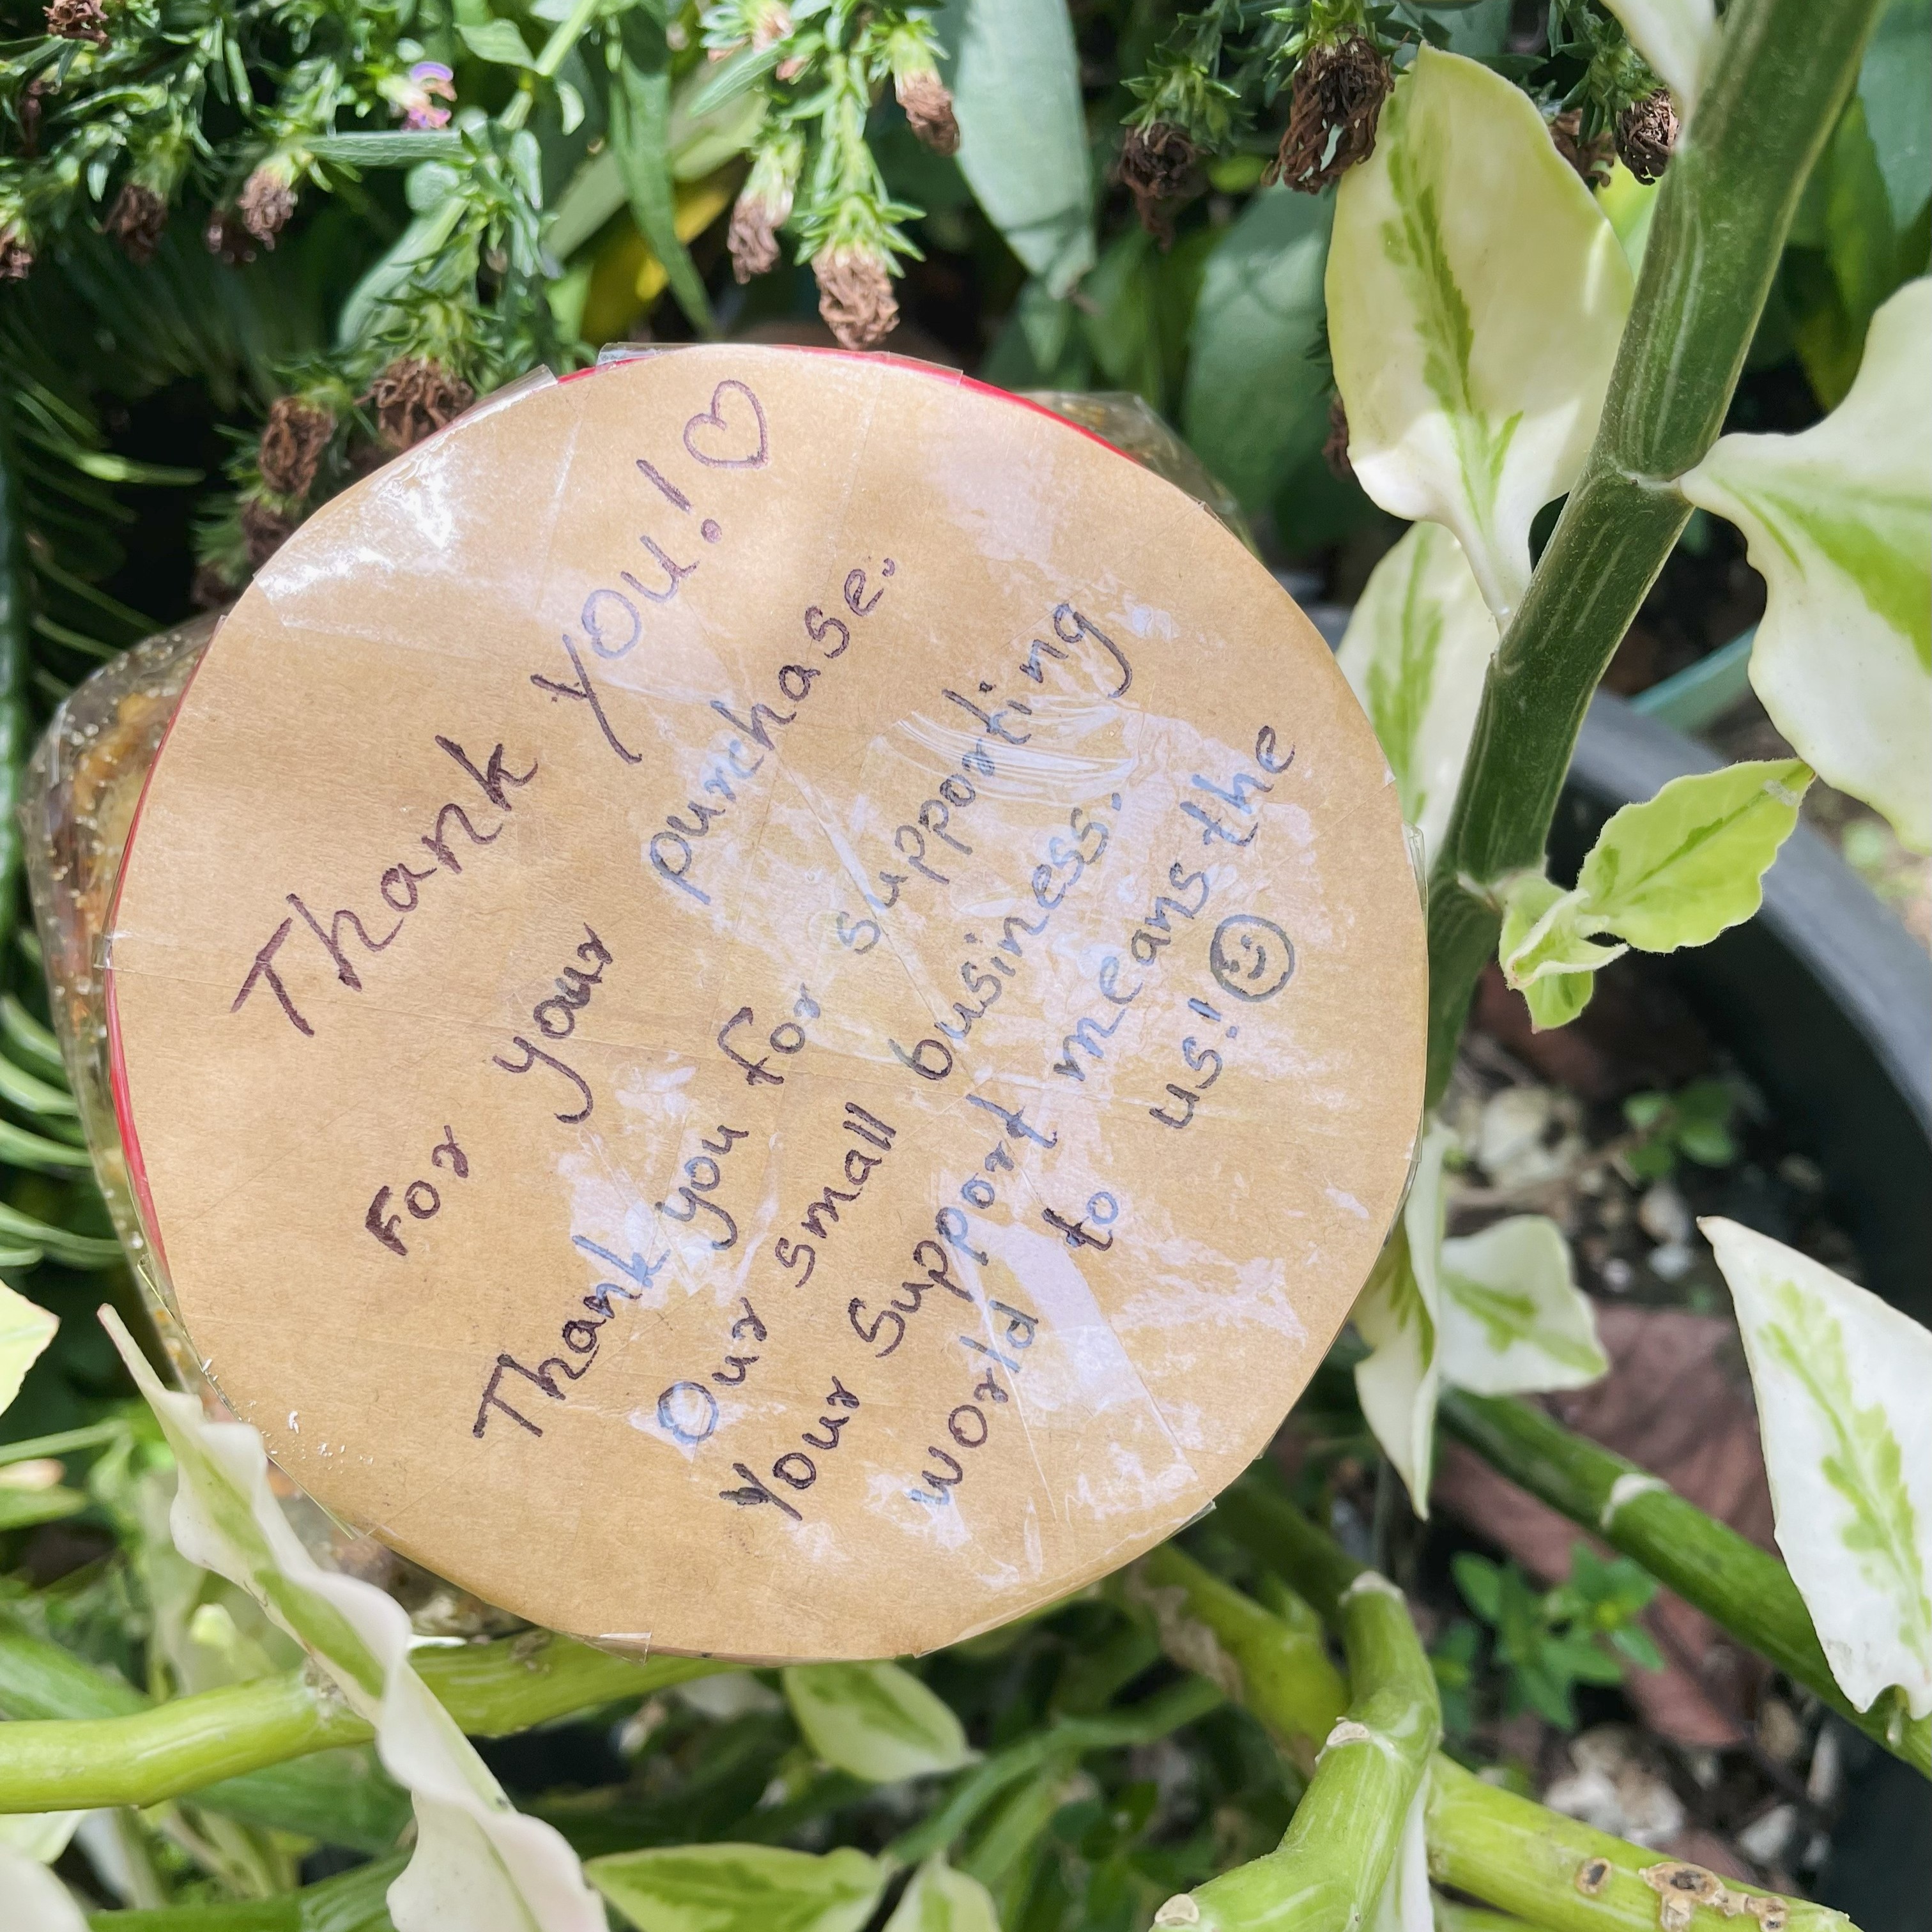 Thank you! ♡
For your purchase.
Thank you for supporting
Our small business.
Your Support means the
world to us! ☺